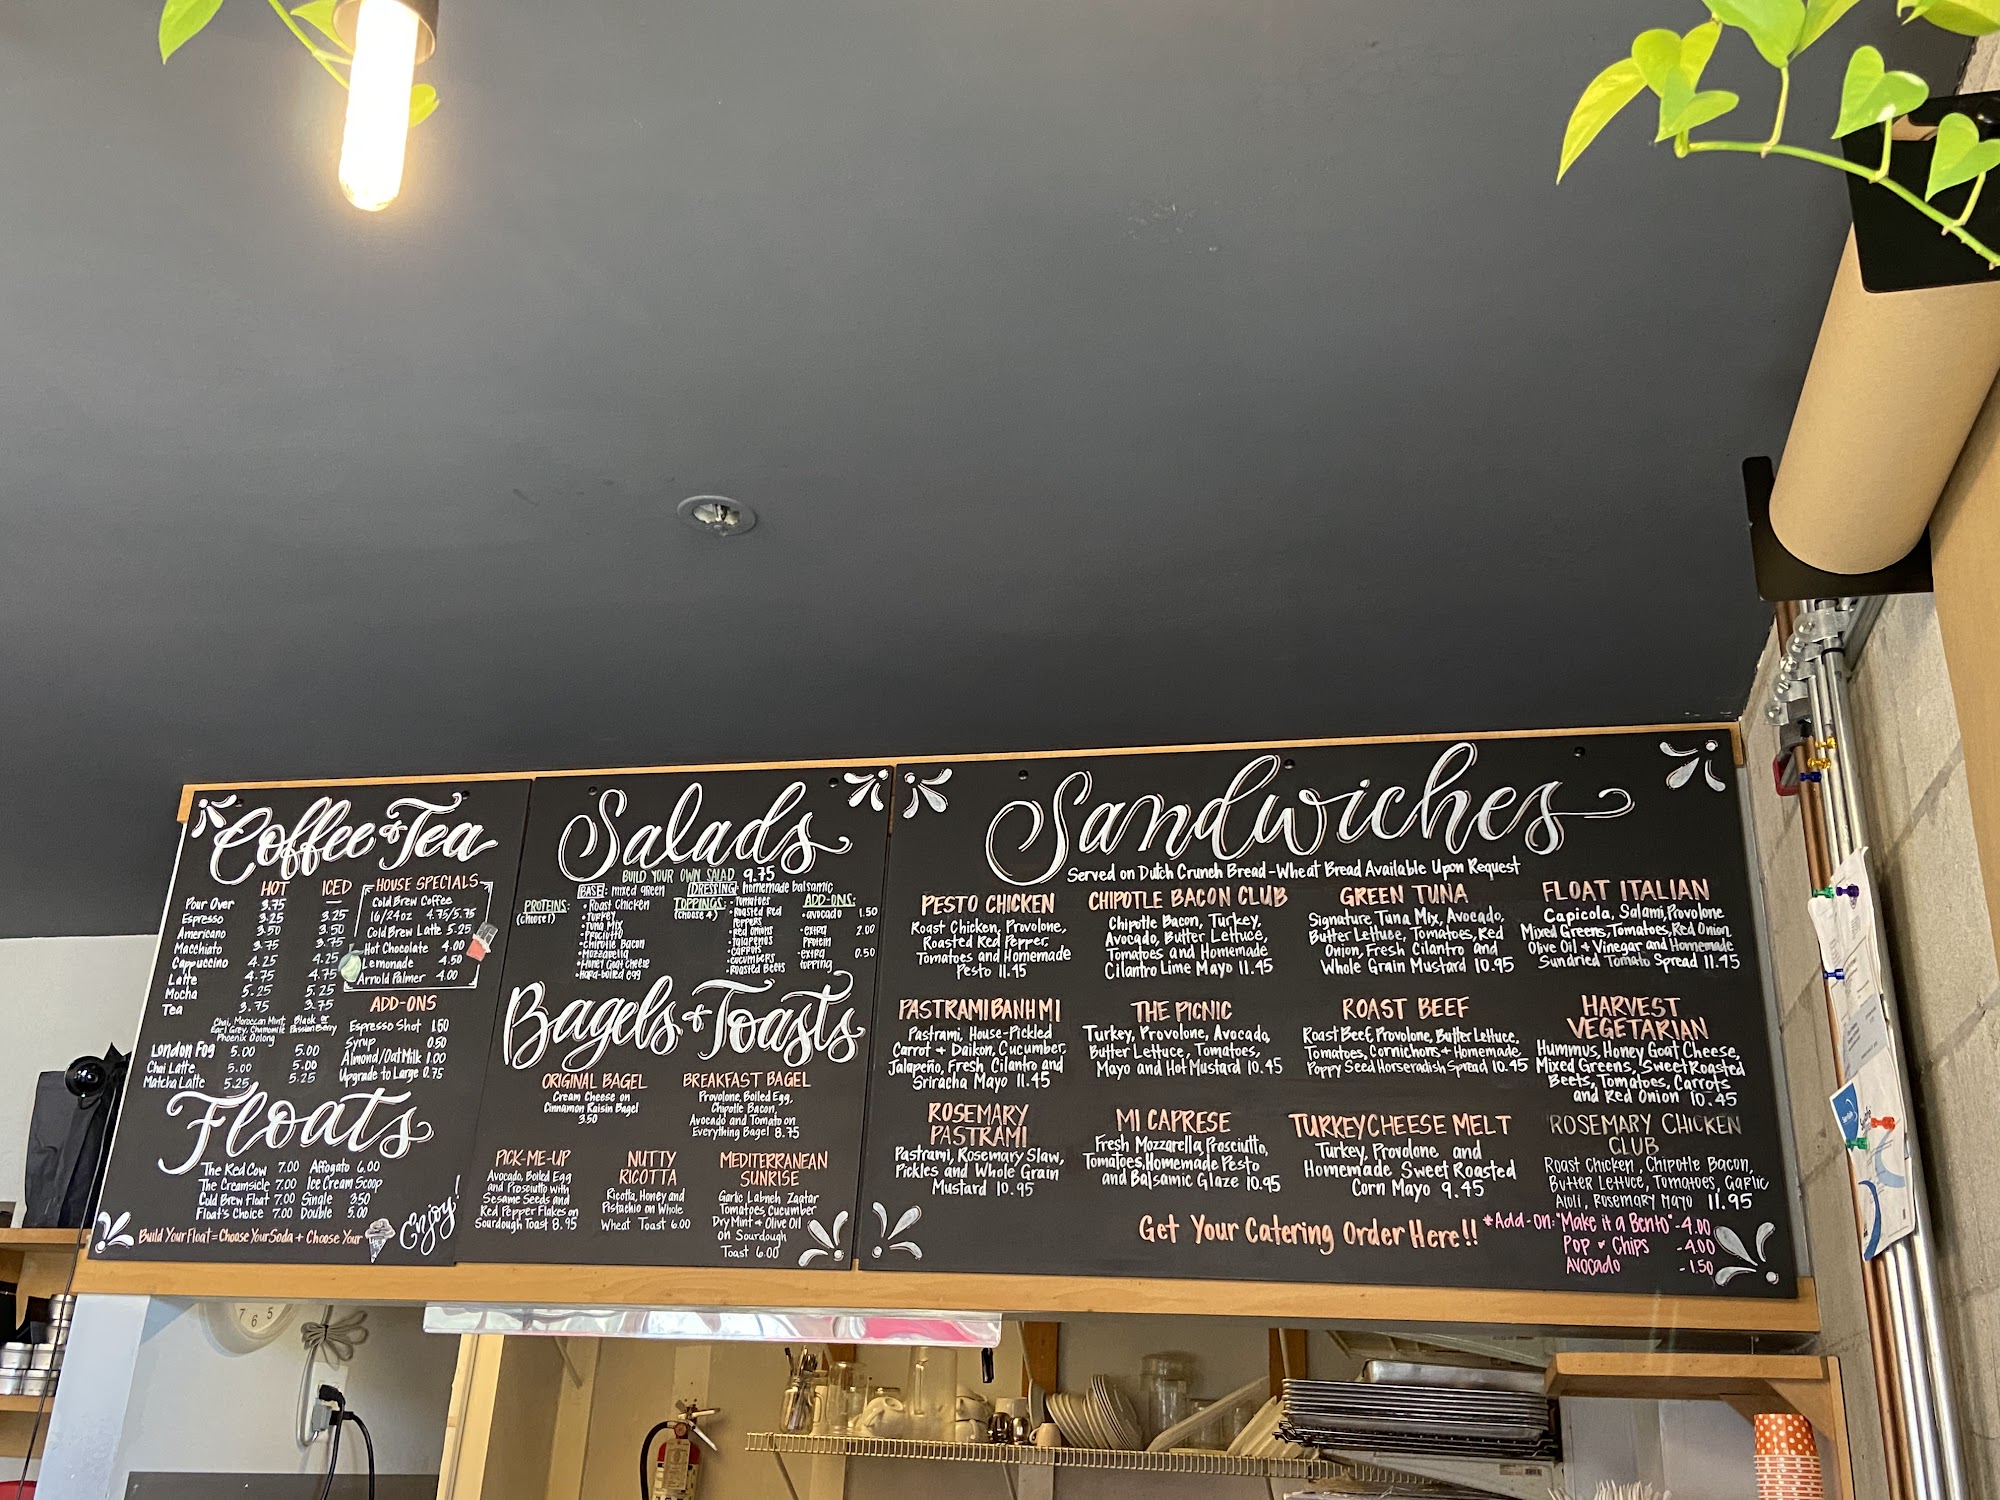 Coffee & Tea
HOT ICED
Pour Over 3.75 —
Espresso 3.25 3.25
Americano 3.50 3.50
Macchiato 3.75 3.75
Cappuccino 4.25 4.25
Latte 4.75 4.75
Mocha 5.25 5.25
Tea 3.75 3.75
Chai, Moroccan Mint, Black or
Earl Grey, Chamomile Passionberry
Phoenix Oolong
London Fog 5.00 5.00
Chai Latte 5.00 5.00
Matcha Latte 5.25 5.25
HOUSE SPECIALS
Cold Brew Coffee
16/24oz 4.75/5.75
Cold Brew Latte 5.25
Hot Chocolate 4.00
Lemonade 4.50
Arnold Palmer 4.00
ADD-ONS
Espresso Shot 1.50
Syrup 0.50
Almond/Oat Milk 1.00
Upgrade to Large 0.75
Floats
The Red Cow 7.00 Affogato 6.00
The Creamsicle 7.00 Ice Cream Scoop
Cold Brew Float 7.00 Single 3.50
Float's Choice 7.00 Double 5.00
Build Your Float = Choose Your Soda + Choose Your
Enjoy!
Salads
BUILD YOUR OWN SALAD 9.75
BASE: mixed green DRESSING: homemade balsamic
PROTEINS:
(choose 1)
• Roast Chicken
• Turkey
• Tuna Mix
• Prociutto
• Chipotle Bacon
• Mozzarella
• Honey Goat Cheese
• Hard-boiled egg
TOPPINGS:
(choose 4)
• Tomatoes
• Roasted Red
Peppers
• Red Onions
• Jalapenos
• Carrots
• Cucumbers
• Roasted Beets
ADD-ONS:
• avocado 1.50
• extra 2.00
Protein
• extra 0.50
topping
Bagels & Toasts
ORIGINAL BAGEL
Cream Cheese on
Cinnamon Raisin Bagel
3.50
BREAKFAST BAGEL
Provolone, Boiled Egg,
Chipotle Bacon,
Avocado and Tomato on
Everything Bagel 8.75
PICK-ME-UP
Avocado, Boiled Egg
and Prosciutto with
Sesame Seeds and
Red Pepper Flakes on
Sourdough Toast 8.95
NUTTY
RICOTTA
Ricotta, Honey and
Pistachio on Whole
Wheat Toast 6.00
MEDITERRANEAN
SUNRISE
Garlic Labneh, Zaatar
Tomatoes, Cucumber
Dry Mint + Olive Oil
on Sourdough
Toast 6.00
Sandwiches
Served on Dutch Crunch Bread - Wheat Bread Available Upon Request
PESTO CHICKEN
Roast Chicken, Provolone,
Roasted Red Pepper,
Tomatoes and Homemade
Pesto 11.45
CHIPOTLE BACON CLUB
Chipotle Bacon, Turkey,
Avocado, Butter Lettuce,
Tomatoes and Homemade
Cilantro Lime Mayo 11.45
GREEN TUNA
Signature Tuna Mix, Avocado,
Butter Lettuce, Tomatoes, Red
Onion, Fresh Cilantro and
Whole Grain Mustard 10.95
FLOAT ITALIAN
Capicola, Salami, Provolone
Mixed Greens, Tomatoes, Red Onion,
Olive Oil + Vinegar and Homemade
Sundried Tomato Spread 11.45
PASTRAMI BANH MI
Pastrami, House-Pickled
Carrot + Daikon, Cucumber,
Jalapeño, Fresh Cilantro and
Sriracha Mayo 11.45
THE PICNIC
Turkey, Provolone, Avocado,
Butter Lettuce, Tomatoes,
Mayo and Hot Mustard 10.45
ROAST BEEF
Roast Beef, Provolone, Butter Lettuce,
Tomatoes, Cornichons + Homemade
Poppy Seed Horseradish Spread 10.45
HARVEST
VEGETARIAN
Hummus, Honey Goat Cheese,
Mixed Greens, Sweet Roasted
Beets, Tomatoes, Carrots
and Red Onion 10.45
ROSEMARY
PASTRAMI
Pastrami, Rosemary Slaw,
Pickles and Whole Grain
Mustard 10.95
MI CAPRESE
Fresh Mozzarella, Prosciutto,
Tomatoes, Homemade Pesto
and Balsamic Glaze 10.95
TURKEY CHEESE MELT
Turkey, Provolone and
Homemade Sweet Roasted
Corn Mayo 9.45
ROSEMARY CHICKEN
CLUB
Roast Chicken, Chipotle Bacon,
Butter Lettuce, Tomatoes, Garlic
Aioli, Rosemary Mayo 11.95
Get Your Catering Order Here!!
*Add-on: "Make it a Bento" - 4.00
Pop & Chips - 4.00
Avocado - 1.50
7 6 5